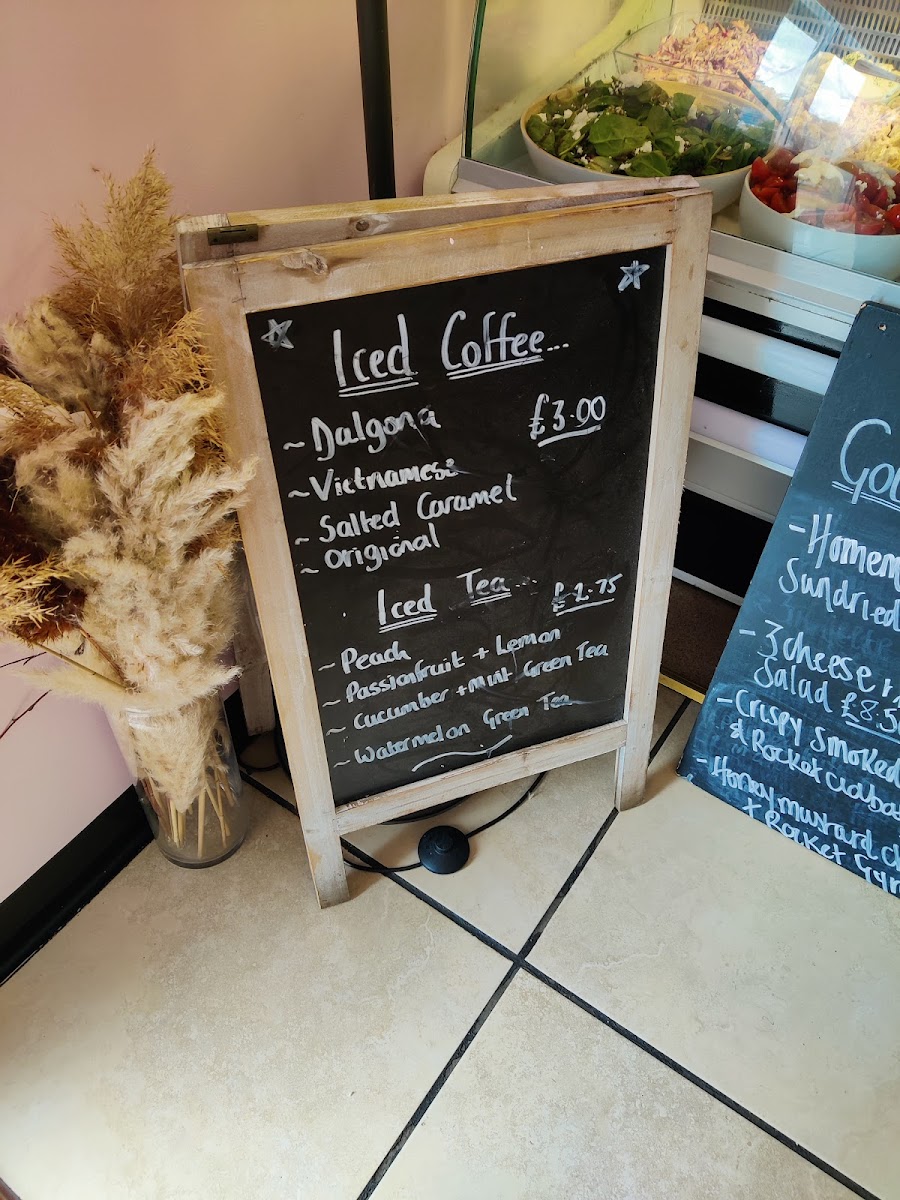 Iced Coffee...
~ Dalgona £3.00
~ Vietnamese
~ Salted Caramel
~ Original
Iced Tea... £2.75
~ Peach
~ Passionfruit + Lemon
~ Cucumber + Mint Green Tea
~ Watermelon Green Tea
- Homem
Sundried
- 3 cheese
Salad £8.50
- Crispy smoked
& Rocket Ciabat
- Honey mustard
+ Rocket